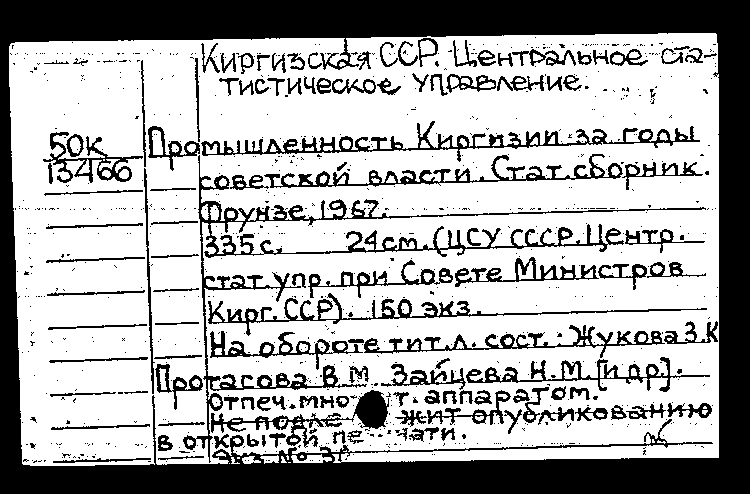 Киргизская ССР. Центральное ста-
тистическое управление.
50К
13466
Промышленность Киргизии за годы
советской власти. Стат. сборник.
Фрунзе, 1967.
335 с. 24 cm. (ЦСУ СССР. Центр.
стат. упр. при Совете Министров
Кирг. ССР). 150 экз.
На обороте тит. л. сост.: Жукова З.К
Протасова В М Зайцева Н.М. [и др.].
Отпеч. мно т. аппаратом.
Не подле жит опубликованию
в открытой пе чати.
Экз. №